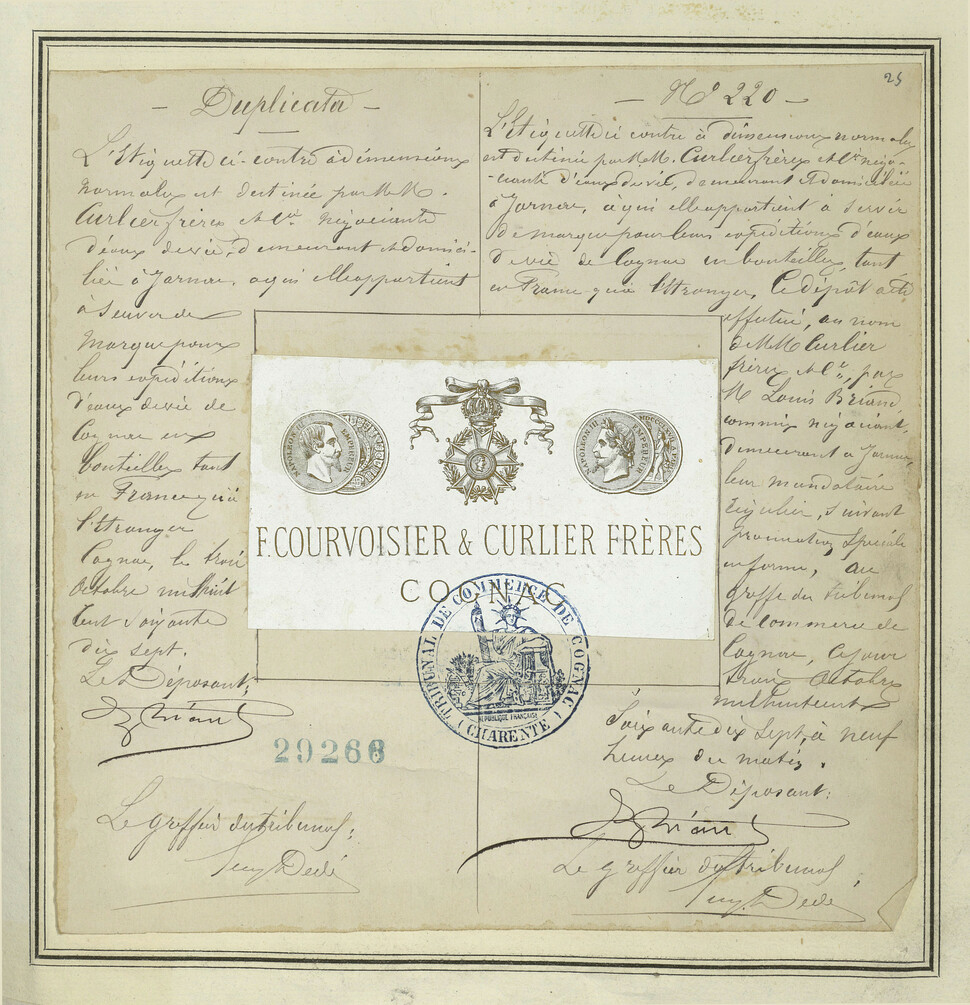 25
- Duplicata -
L'Etiquette ci-contre à dimensions
normales est destinée par M.M.
Curlier frères et Cie négociants
d'eaux de vie, demeurant et domici-
-liés à Jarnac, à qui elle appartient
à servir de
marque pour
leurs expéditions
d'eaux de vie de
Cognac en
bouteilles tant
en France qu'à
l'étranger
Cognac, le trois
Octobre mil huit
cent soixante
dix sept.
Le Déposant;
29266
Le greffier du tribunal;
- N° 220 -
L'Etiquette ci contre à dimensions normales
est destinée par M.M. Curlier frères et Cie négo-
-ciants d'eaux de vie, demeurant et domiciliés
à Jarnac, à qui elle appartient à servir
de marque pour leurs expéditions d'eaux
de vie de Cognac en bouteilles, tant
en France qu'à l'étranger, Ce dépôt a été
effectué, au nom
de M.M Curlier
frères et Cie, par
M Louis Briand,
commis négociant,
demeurant à Jarnac,
leur mandataire
régulier, suivant
procuration spéciale
en forme, au
greffe du tribunal
de commerce de
Cognac, ce jour
trois Octobre
mil huit cent
soixante dix sept, à neuf
heures du matin.
Le Déposant:
Le greffier du tribunal,
NAPOLEON III EMPEREUR
NAPOLEON III EMPEREUR
F. COURVOISIER & CURLIER FRÈRES
COGNAC
TRIBUNAL DE COMMERCE DE COGNAC
REPUBLIQUE FRANÇAISE
(CHARENTE)